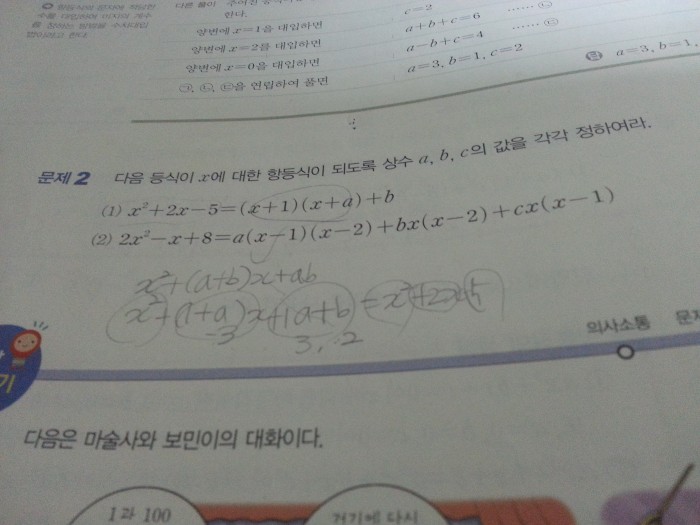 c=2
한다.
양변에 x=1을 대입하면 a+b+c=6 ⋯⋯ ㉡
양변에 x=2를 대입하면 a-b+c=4 ⋯⋯ ㉢
양변에 x=0을 대입하면 a=3, b=1, c=2
㉠, ㉡, ㉢을 연립하여 풀면 답 a=3, b=1,
문제 2 다음 등식이 x에 대한 항등식이 되도록 상수 a, b, c의 값을 각각 정하여라.
(1) x²+2x-5=(x+1)(x+a)+b
(2) 2x²-x+8=a(x-1)(x-2)+bx(x-2)+cx(x-1)
x²+(a+b)x+ab
x²+(1+a)x+1a+b=x²+2x-5
-3 3, -2
의사소통 문제
기
다음은 마술사와 보민이의 대화이다.
1과 100 거기에 다시